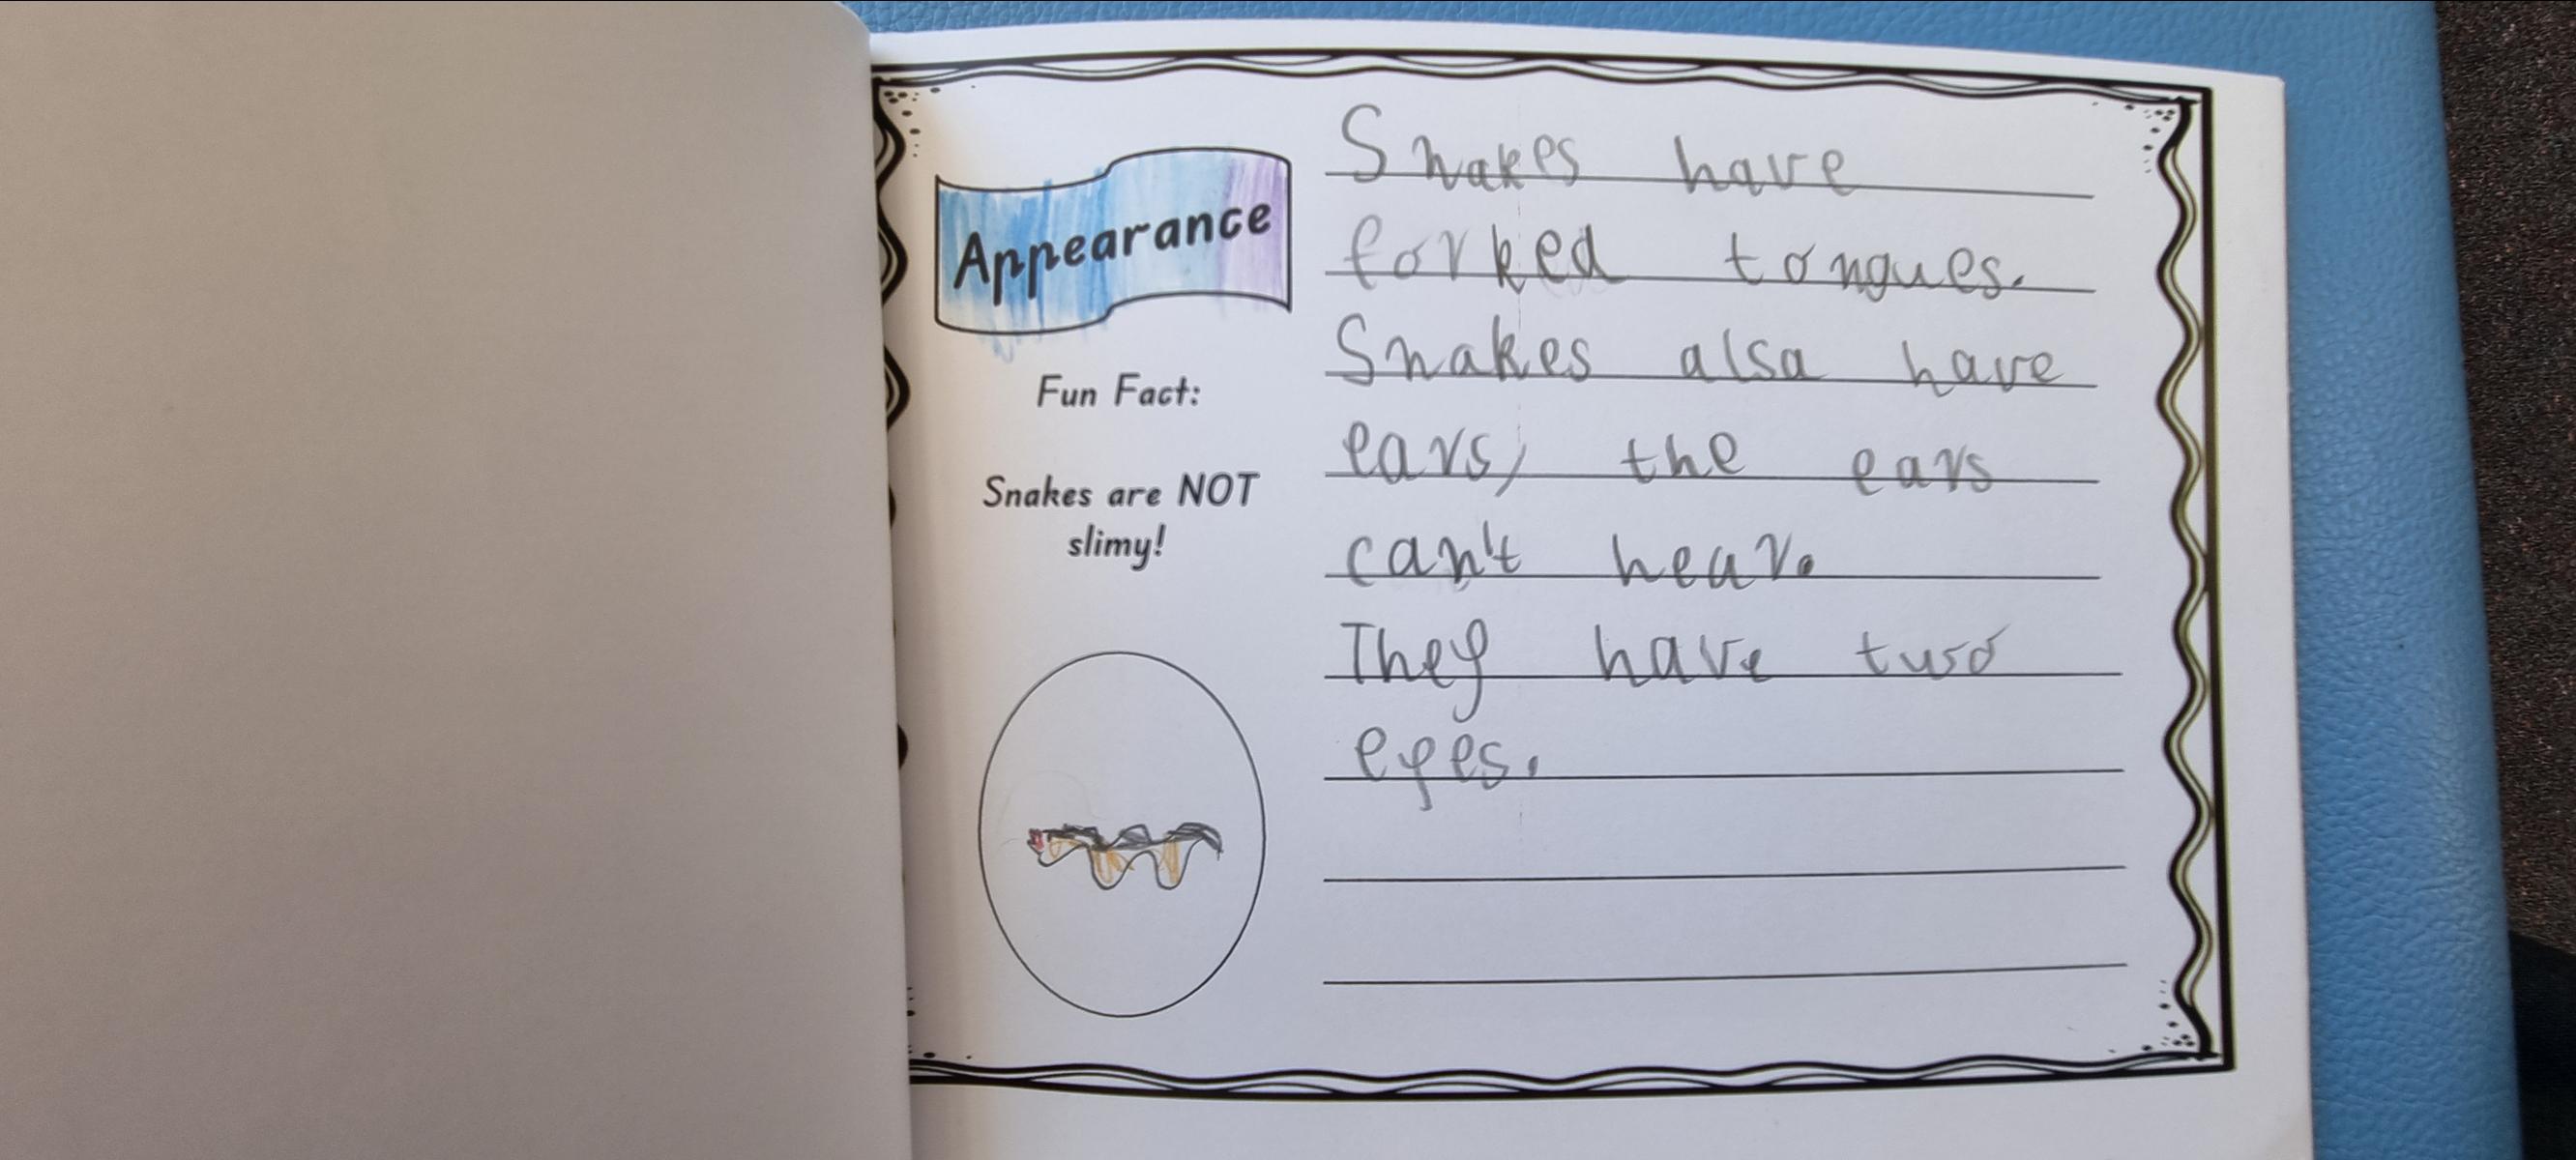 Appearance
Fun Fact:
Snakes are NOT
slimy!
Snakes have
forked tongues.
Snakes alsa have
ears, the ears
can't hear.
They have two
eyes.